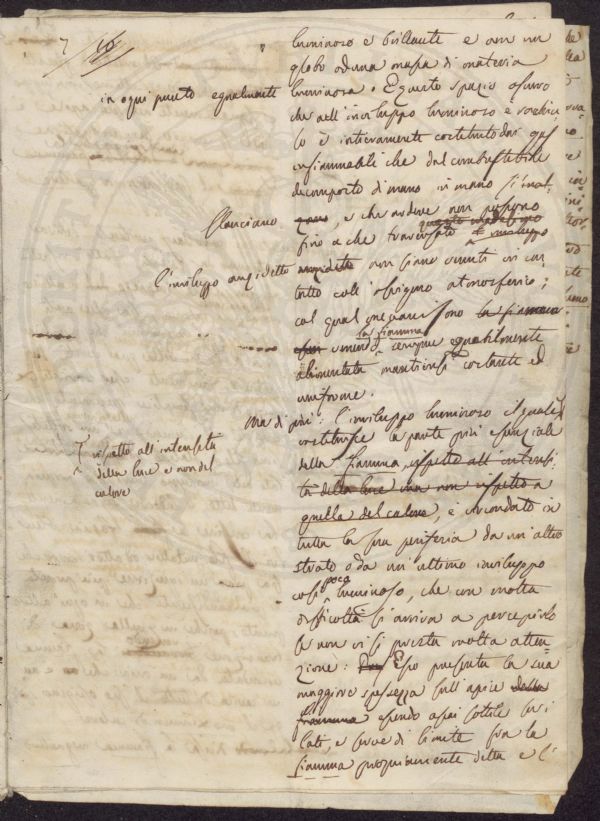 7
luminoso e brillante e con un
globo od una massa di materia
in ogni punto egualmente luminosa. E questo spazio oscuro
che nell'inviluppo luminoso è racchiu
so è intieramente costituito dai gas
infiammabili che dal combustibile
decomposto di mano in mano s'inal-
slanciano, e che ardere non possono
fino a che traversato questo inviluppo
l'inviluppo anzidetto non siano venuti in con
tatto coll'ossigeno atmosferico;
col qual
la fiamma
sempre egualmente
alimentata mantiensi costante ed
uniforme.
Ma di più: l'inviluppo luminoso il quale
costituisce la parte più essenziale
rispetto all'intensità
della luce e non del
calore
della fiamma, rispetto all'intensi
tà della luce ma non rispetto a
quella del calore, è circondato in
tutta la sua periferia da un'altro
strato o da un'ultimo inviluppo
così poco luminoso, che con molta
difficoltà si arriva a percepirlo
se non vi si presta molta atten
zione: Esso presenta la sua
maggiore spessezza sull'apice della
fiamma essendo assai sottile sui
lati, e serve di limite fra la
fiamma propriamente detta e l'